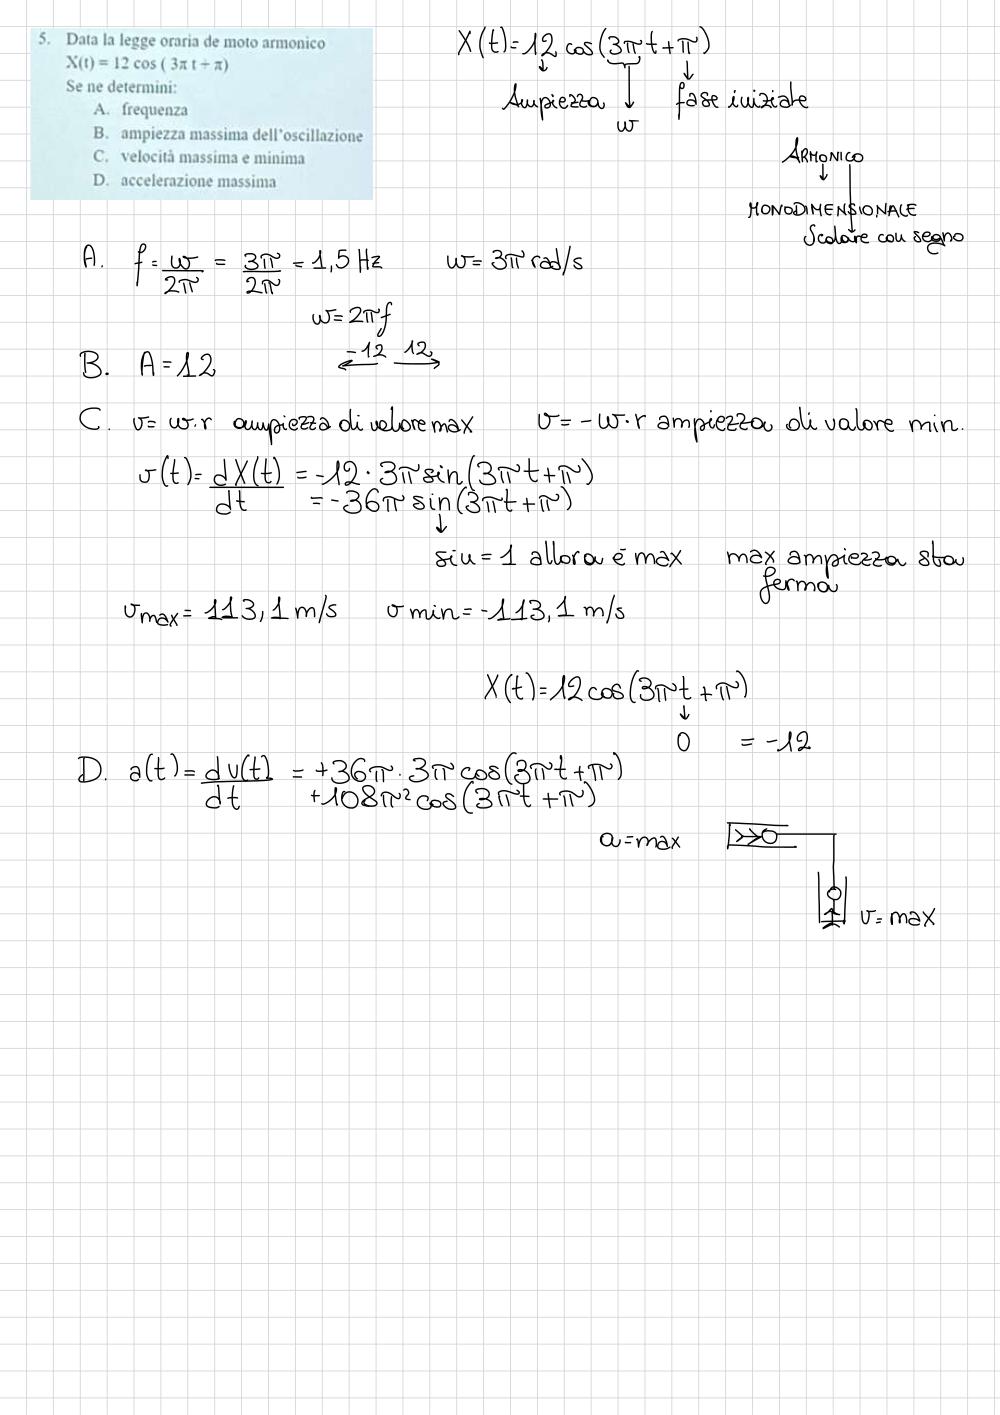 5. Data la legge oraria de moto armonico
X(t) = 12 cos ( 3π t + π)
Se ne determini:
A. frequenza
B. ampiezza massima dell'oscillazione
C. velocità massima e minima
D. accelerazione massima
X(t)=12 cos(3πt+π)
Ampiezza
w
fase iniziale
ARMONICO
MONODIMENSIONALE
Scolare con segno
A. f = w/2π = 3π/2π = 1,5 Hz w = 3π rad/s
w = 2πf
B. A = 12
-12 12
C. v = w·r ampiezza di valore max v = -w·r ampiezza di valore min.
v(t) = dX(t)/dt = -12 · 3π sin(3πt+π)
= -36π sin(3πt+π)
sin = 1 allora é max
max ampiezza sta
ferma
vmax = 113,1 m/s v min = -113,1 m/s
X(t)=12cos(3πt+π)
0 = -12
D. a(t) = dv(t)/dt = +36π · 3π cos(3πt+π)
+108π² cos(3πt+π)
a=max
v=max